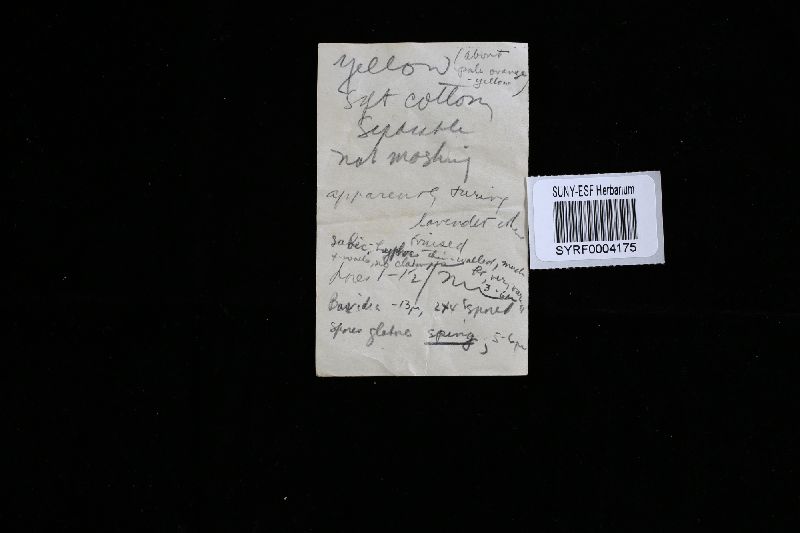 Yellow (about
pale orange
- yellow)
soft cottony
Separable
not
apparently turning
lavender when
bruised
Subic. hyphae thin-walled, much
no clamps, or very rare
Pores 1-1/2 / mm
3-
Basidia -13µ, 2+4 spored
Spores globose spiny, 5-6µ
SUNY-ESF Herbarium
SYRF0004175